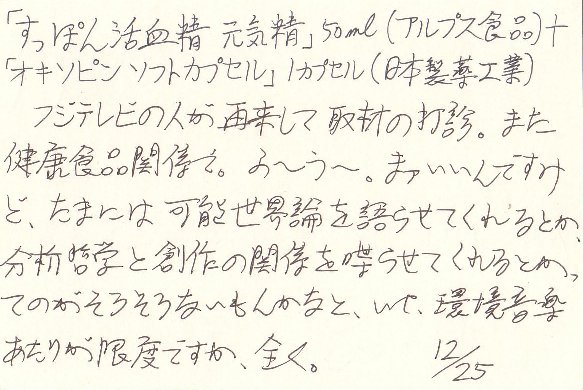 「すっぽん活血精 元気精」50ml(アルプス食品)+
「オキソピン ソフトカプセル」1カプセル(日本製薬工業)
フジテレビの人が再来して取材の打診。また
健康食品関係で。う〜う〜。まァいいんですけ
ど、たまには可能世界論を語らせてくれるとか、
分析哲学と創作の関係を喋らせてくれるとかっ
てのがそろそろないもんかなと、いや、環境音楽
あたりが限度ですか、全く。
12/25